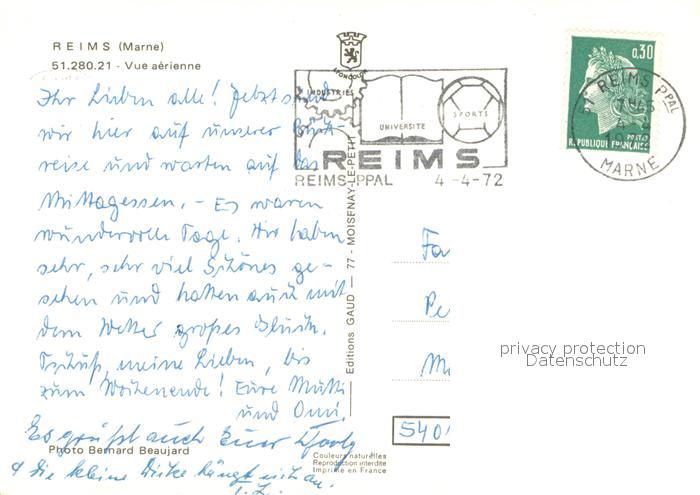 REIMS (Marne)
51.280.21 - Vue aérienne
Ihr Lieben alle! Jetzt sind
wir hier auf unserer Rück-
reise und warten auf das
Mittagessen. - Es waren
wundervolle Tage. Wir haben
sehr, sehr viel Schönes ge-
sehen und hatten auch mit
dem Wetter großes Glück.
Tschüß, meine Lieben, bis
zum Wochenende! Eure Mutti
und Omi.
Es grüßt auch Euer
& die kleine hängt sich an.
Photo Bernard Beaujard
Couleurs naturelles
Reproduction interdite
Imprimé en France
Editions GAUD — 77 - MOISENAY-LE-PETIT
INDUSTRIES
UNIVERSITE
SPORTS
REIMS
REIMS-PPAL 4-4-72
0,30
POSTES
REPUBLIQUE FRANÇAISE
REIMS PPAL
MARNE
Fa
Pe
540
privacy protection
Datenschutz